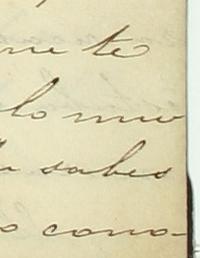 me te
lo mu
sabes
o cono-